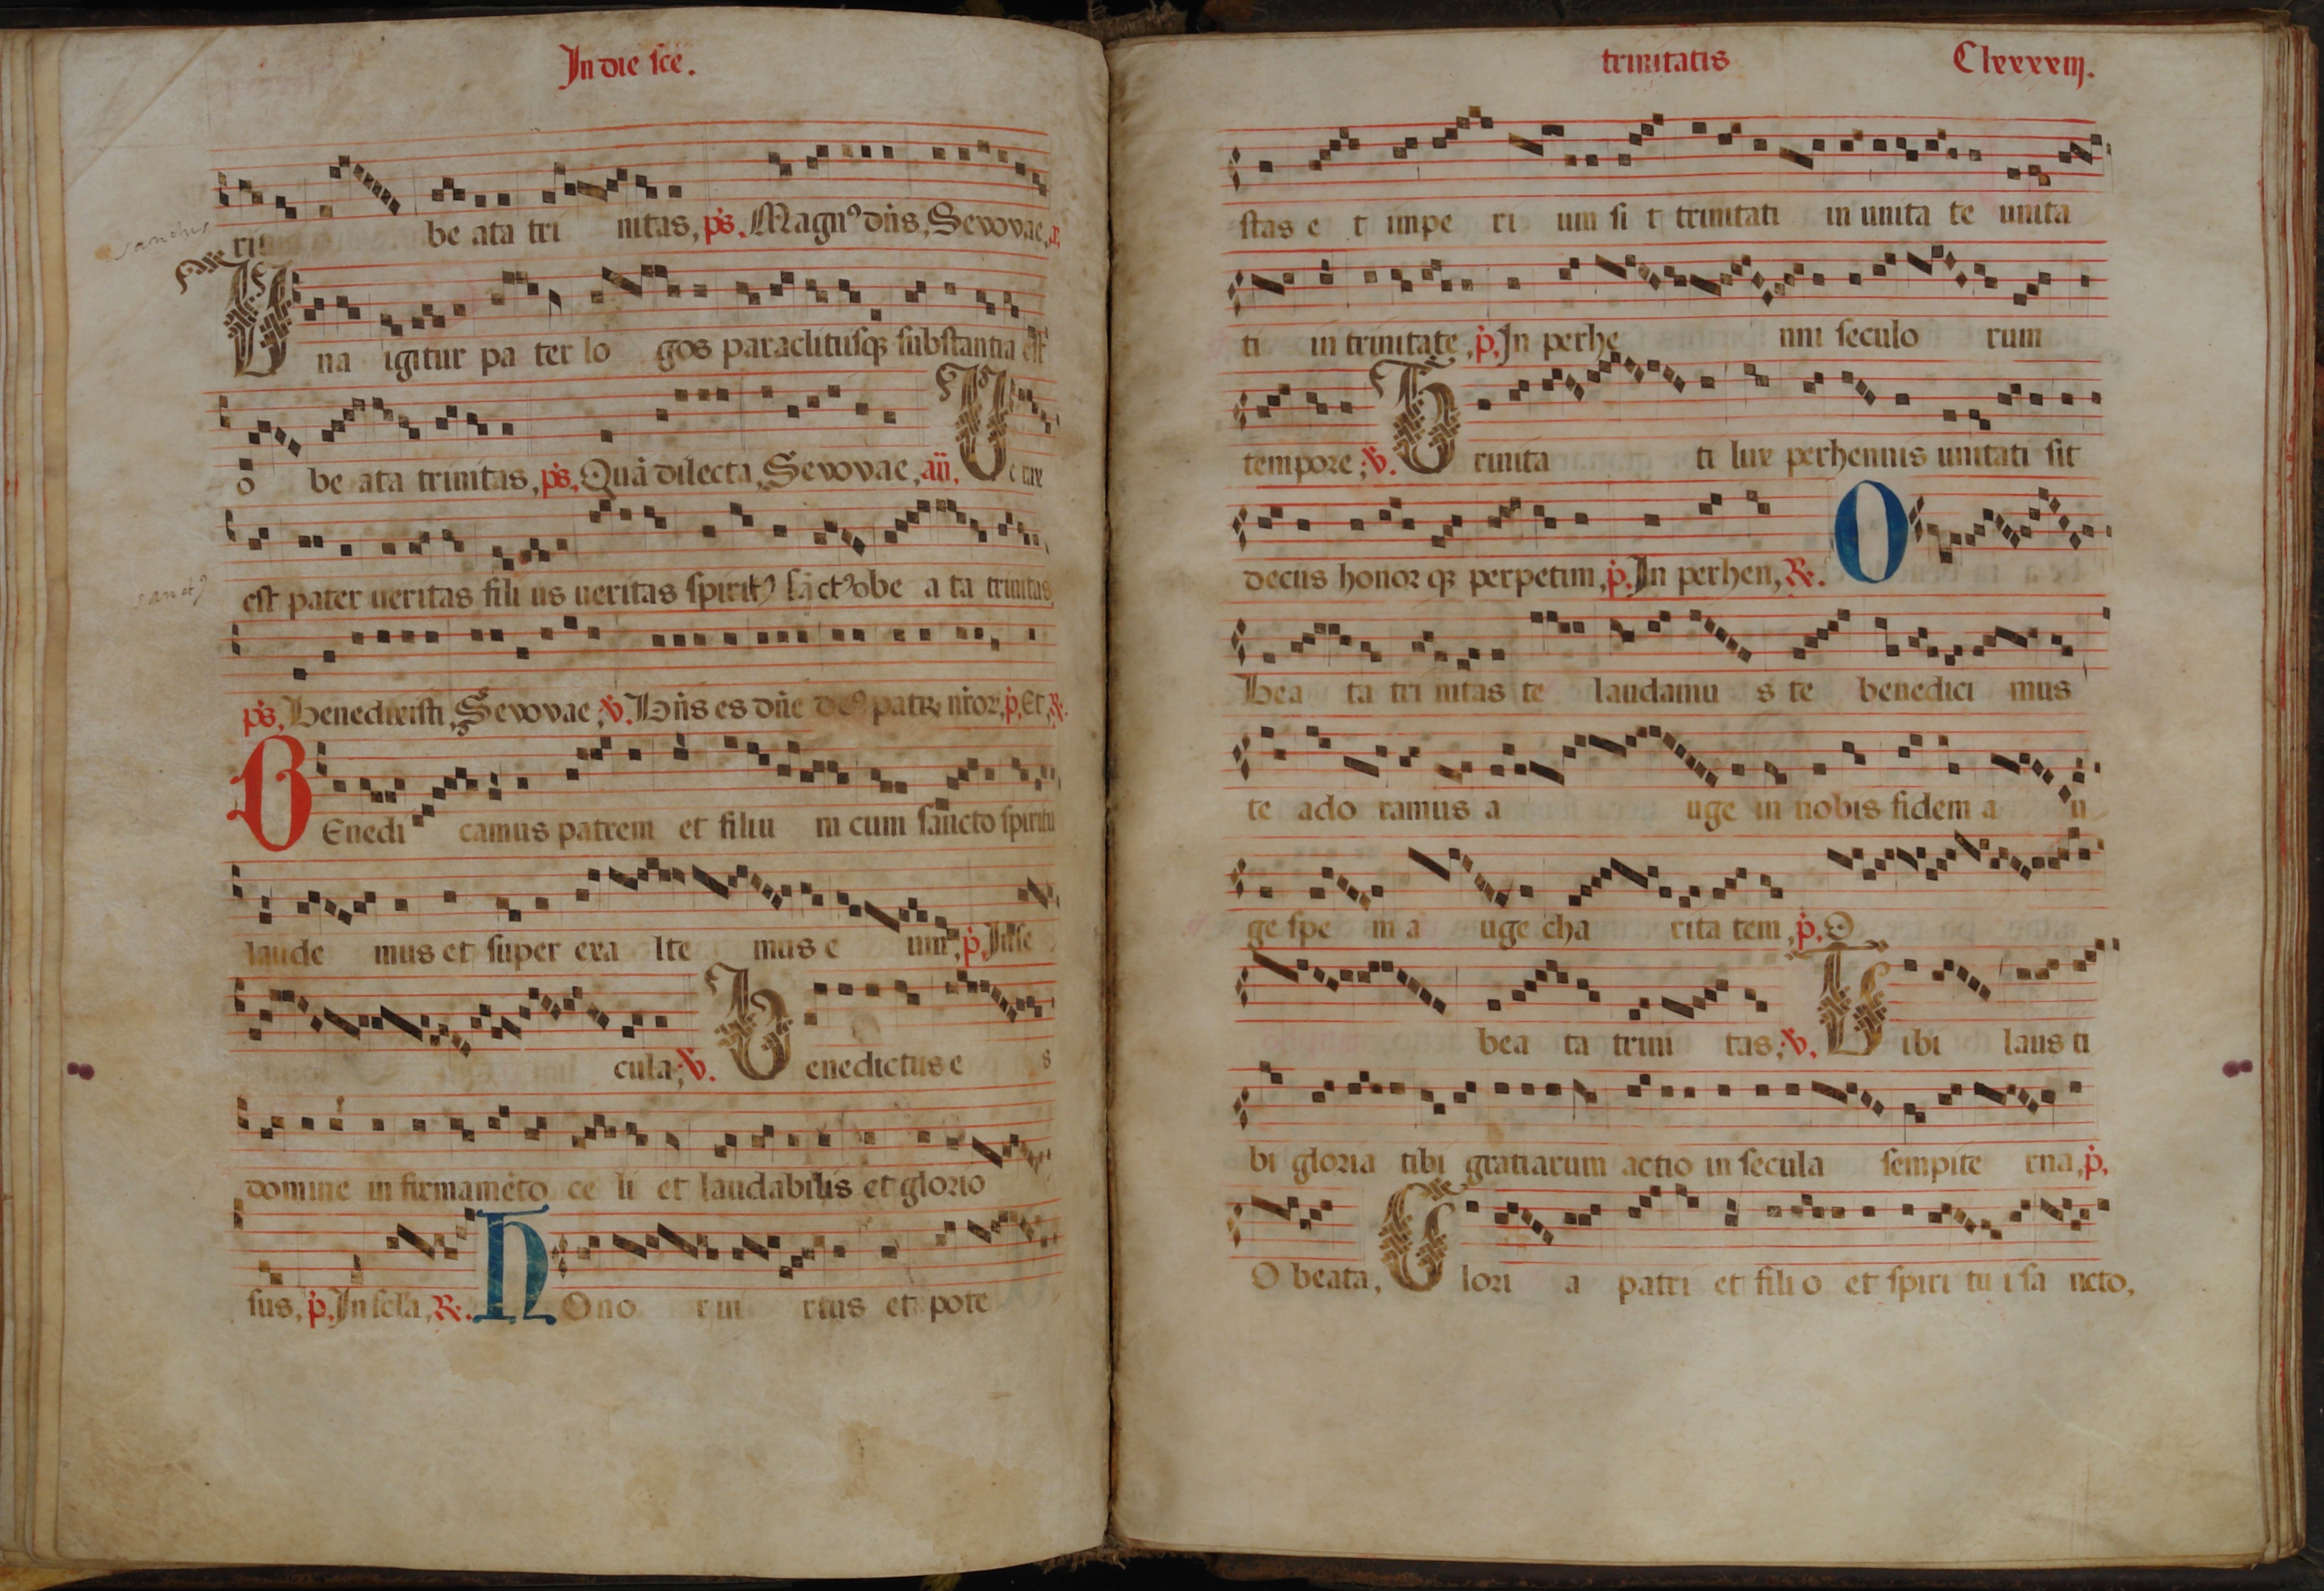 In die sce.
sanctus
ri be ata tri nitas, ps. Magnꝰ dñs, Sevovae,
Una igitur pa ter lo gos paraclitusqꝫ substantia est
o be ata trinitas, ps. Quā dilecta, Sevovae, añ. Ue tax
est pater ueritas fili us ueritas spiritꝰ sāctꝰ obe a ta trinitas,
sanctꝰ
ps. Benedixisti, Sevovae, ℣. Bñs es dñe deꝰ patꝝ nror, p. Et, ℟.
BEnedi camus patrem et filiu m cum sancto spiritu
laude mus et super exa lte mus e um, p. In se
cula; ℣. Benedictus e s
domine in firmamēto ce li et laudabilis et glorio
sus, p. In scła, ℟. HOno r ui rtus et pote
trinitatis Clxxxxiij.
stas e t impe ri um si t trinitati in unita te unita
ti in trinitate, p. In perhe nni seculo rum
tempore; ℣. Trinita ti lux perhennis unitati sit
decus honor qꝫ perpetim, p. In perhen, ℟. O
Bea ta tri nitas te laudamu s te benedici mus
te ado ramus a uge in nobis fidem a u
ge spe m a uge cha rita tem, p. O
bea ta trini tas; ℣. Tibi laus ti
bi gloria tibi gratiarum actio in secula sempite rna, p.
O beata, Glori a patri et fili o et spiri tu i sa ncto,